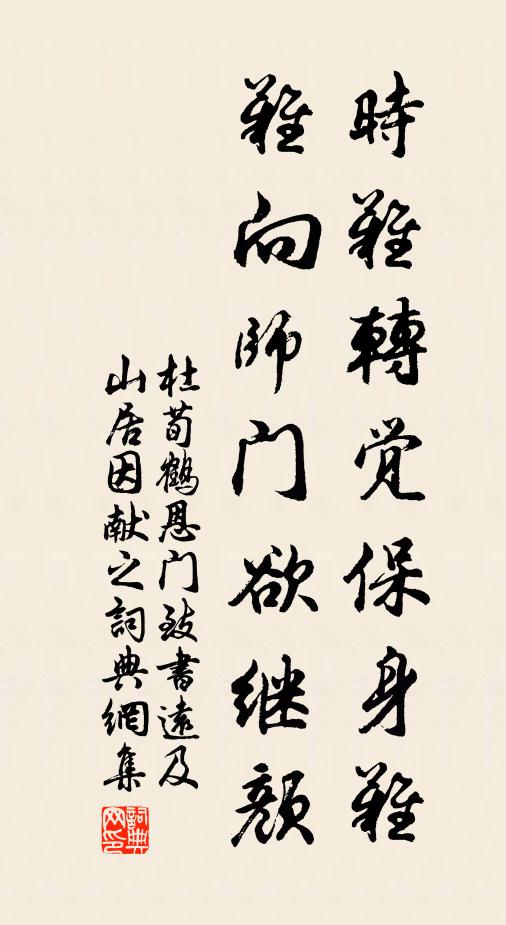 時難轉觉保身難
難向師门欲继顏
杜荀鶴恩门致書遠及
山居因献之詞典網集
詞典
网印